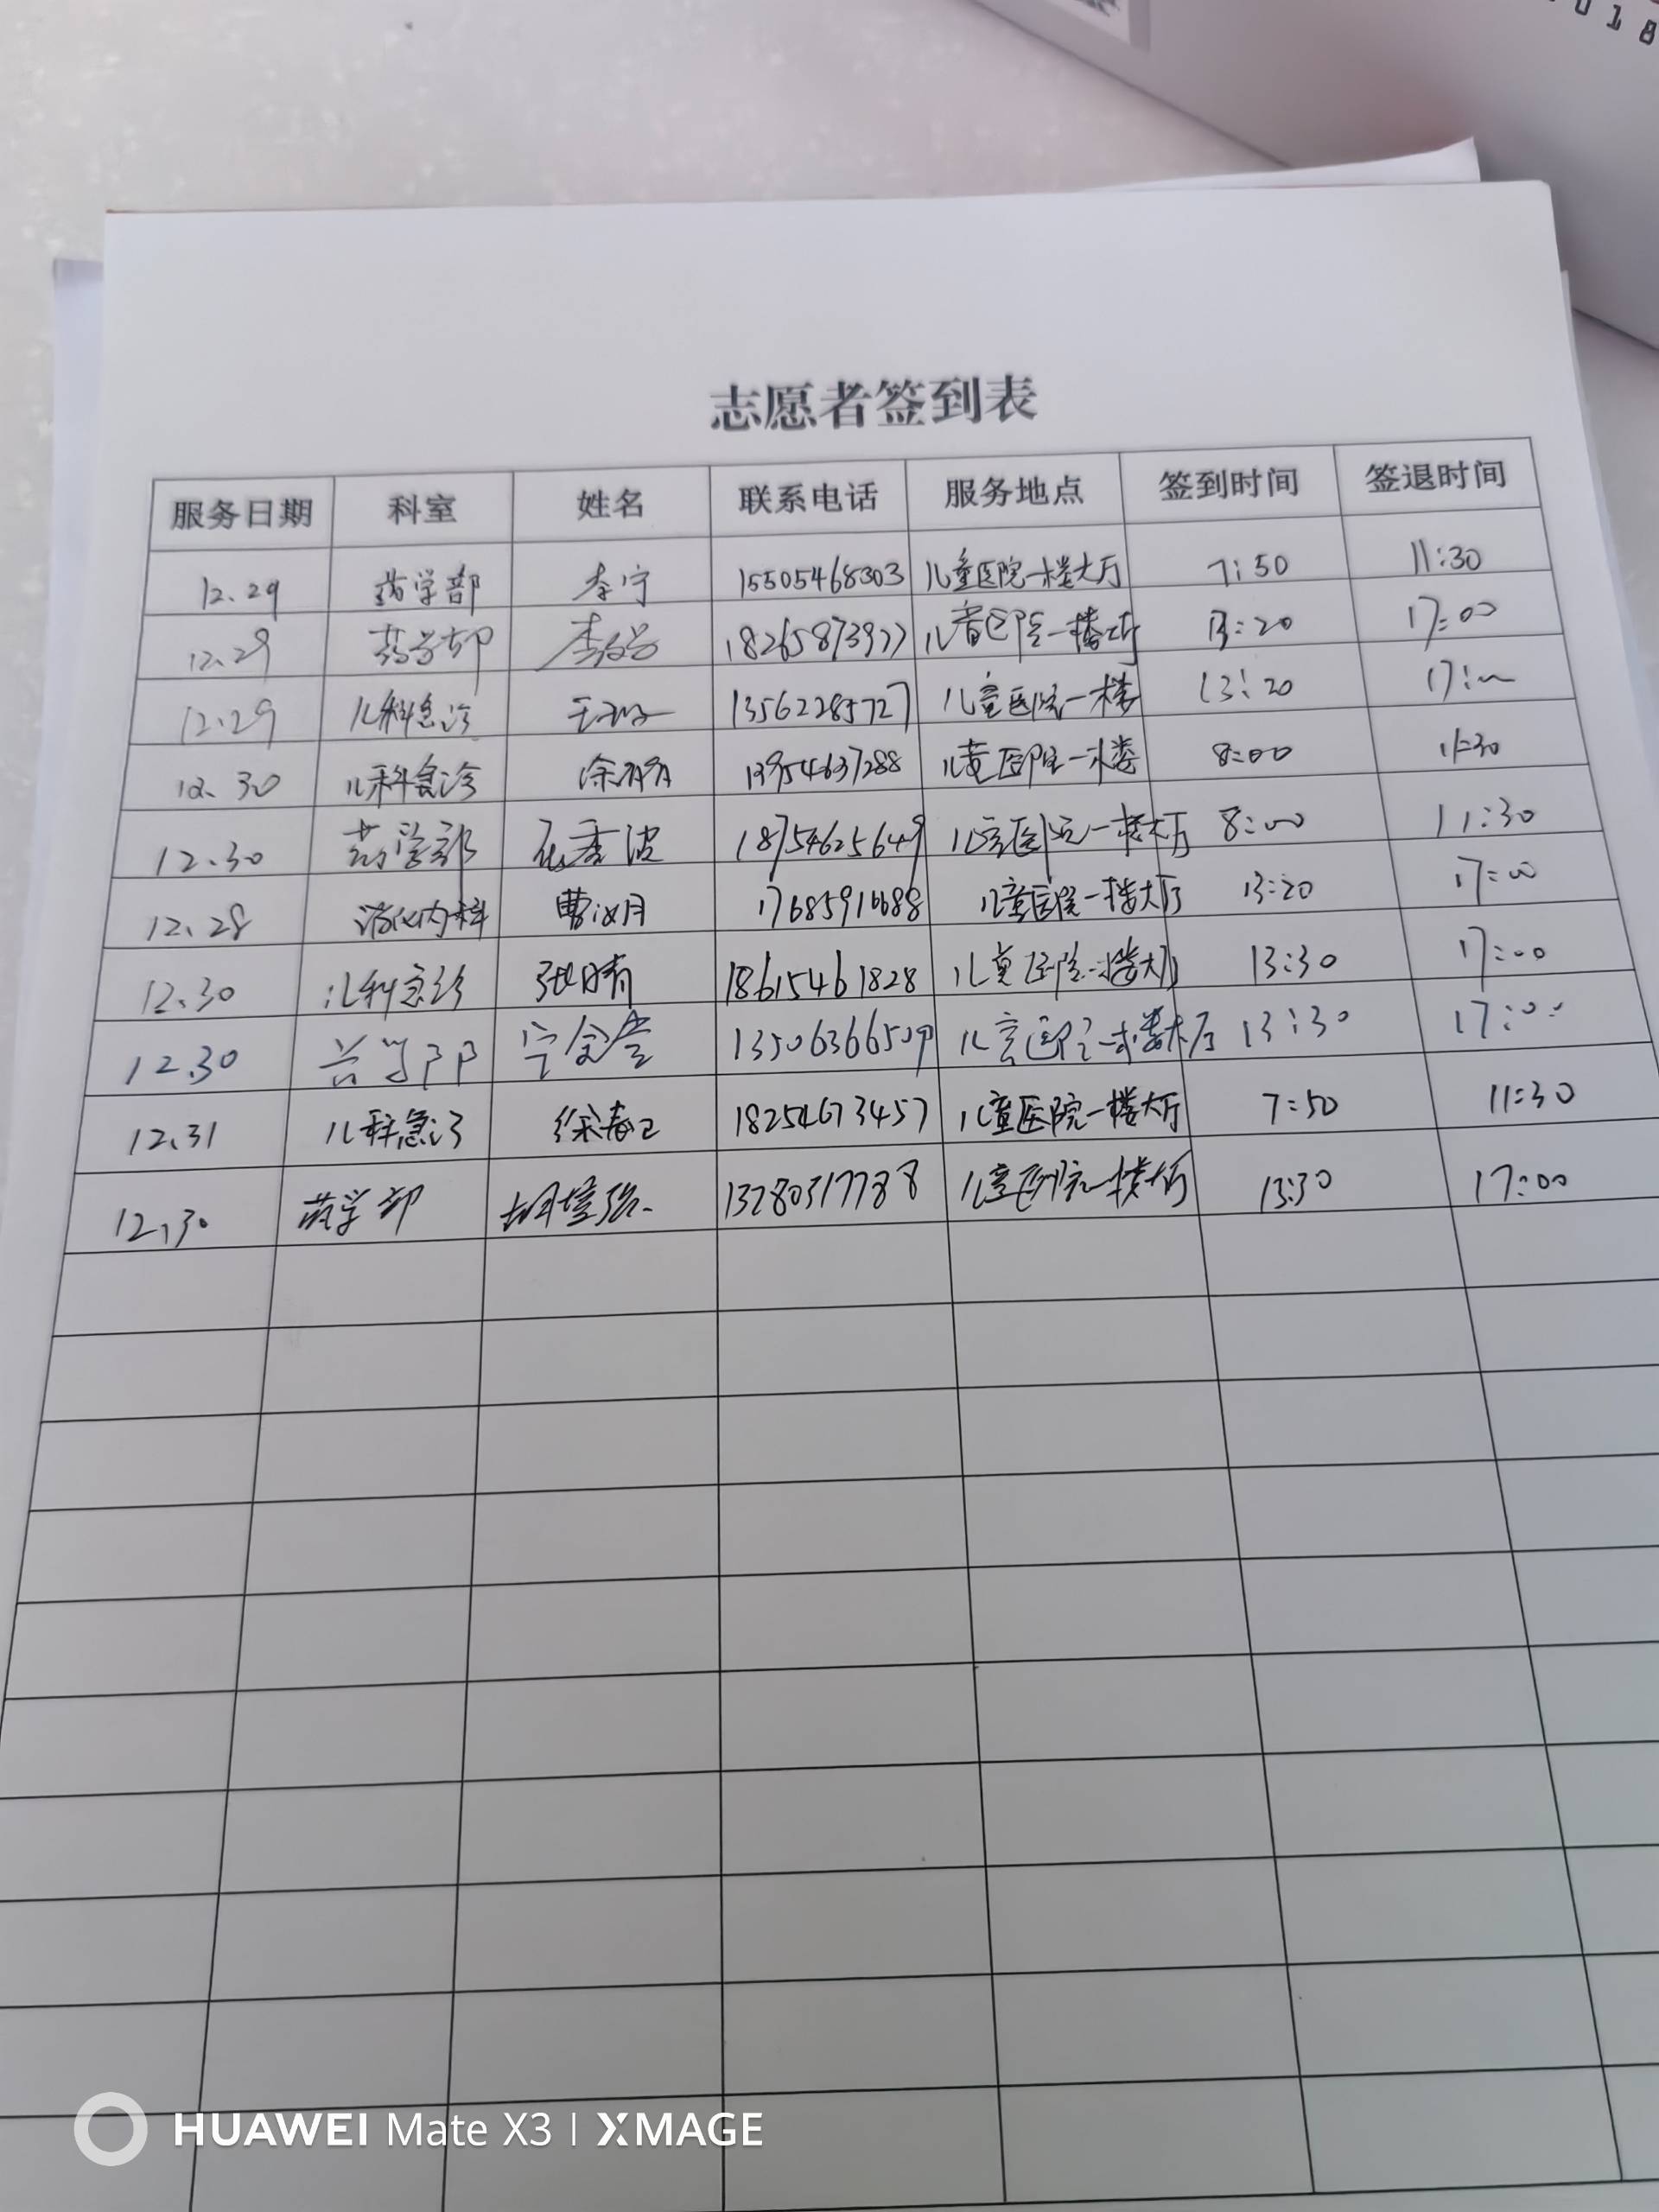 018
志愿者签到表
服务日期 科室 姓名 联系电话 服务地点 签到时间 签退时间
12.29 药学部 李宁 15505468303 儿童医院一楼大厅 7:50 11:30
12.29 药学部 18265873977 儿童医院一楼大厅 13:20 17:00
12.29 儿科急诊 13562285727 儿童医院一楼 13:20 17:00
12.30 儿科急诊 13954637288 儿童医院一楼 8:00 11:30
12.30 药学部 18754625649 儿童医院一楼大厅 8:00 11:30
12.28 消化内科 曹汝月 儿童医院一楼大厅 13:20 17:00
12.30 儿科急诊 张晴 18615461828 儿童医院一楼大厅 13:30 17:00
12.30 药学部 13506366509 儿童医院一楼大厅 13:30 17:00
12.31 儿科急诊 18254673457 儿童医院一楼大厅 7:50 11:30
12.30 药学部 儿童医院一楼大厅 13:30 17:00
HUAWEI Mate X3 | XMAGE